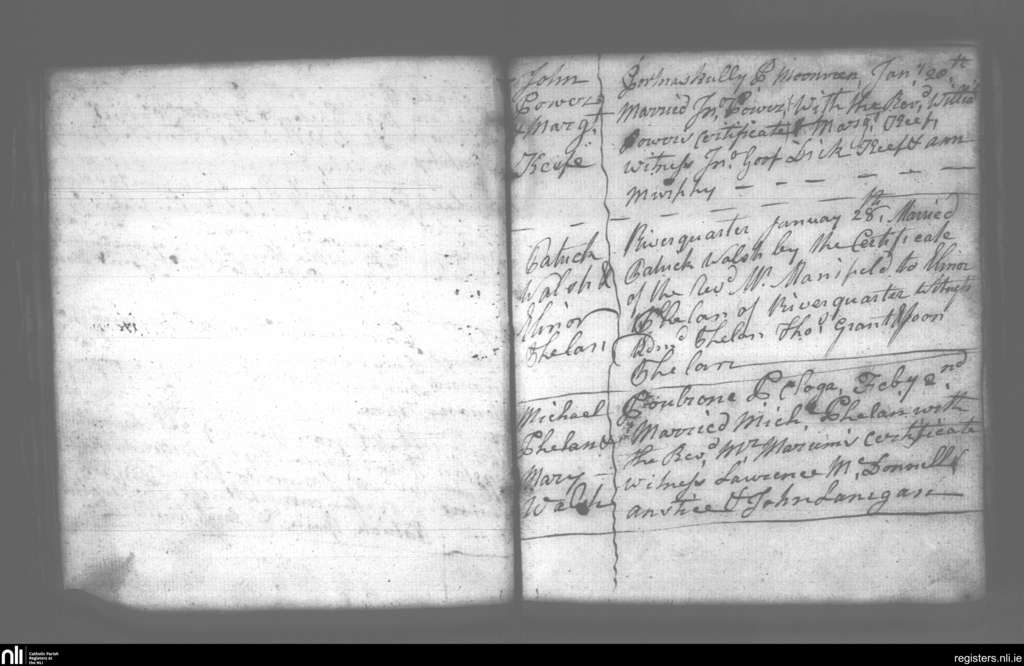 John
Power
& Marg.t
Keefe
Gortnaskully P Mooncoin, Jan.y 20.th
Married Jn.o Power (With the Rev.d William
Powers Certificate) & Marg.t Keef,
witness Jn.o Goof Dick Keef & ann
Murphy
Patrick
Walsh &
Elinor
Phelan
Riverquarter January 28.th Married
Patrick Walsh by the Certificate
of the Rev.d Mr. Manifeld to Elinor
Phelan of Riverquarter witness
Edm.d Phelan Tho.s Grant & Joon
Phelan
Michael
Phelan &
Mary
Walsh
P Cloga, Feb.y 2.nd
Married Mich.l Phelan with
the Rev.d Mr. certificate
witness Lawrence Mc. Donnell
anstice & John Lanigan
nli
Catholic Parish
Registers at
the NLI
registers.nli.ie